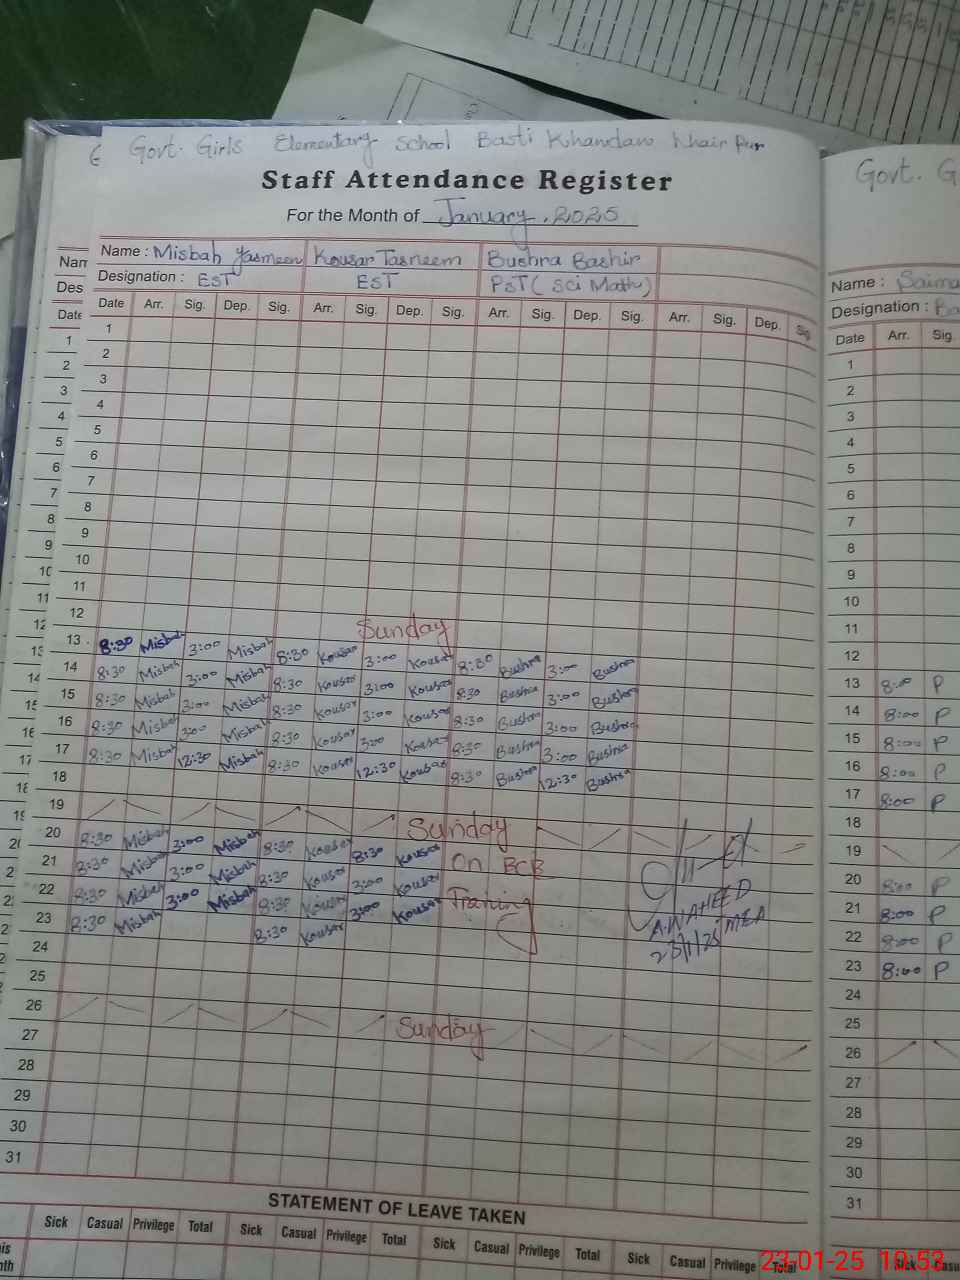 Govt. Girls Elementary School Basti Khandaw Khair Pur
Staff Attendance Register
For the Month of January, 2025
Name : Misbah Yasmeen Kousar Tasneem Bushra Bashir
Designation : EST EST PST (Sci Math)
Date Arr. Sig. Dep. Sig. Arr. Sig. Dep. Sig. Arr. Sig. Dep. Sig. Arr. Sig. Dep. Sig
1
2
3
4
5
6
7
8
9
10
11
12 Sunday
13 8:30 Misbah 3:00 Misbah 8:30 Kousar 3:00 Kousar 8:30 Bushra 3:00 Bushra
14 8:30 Misbah 3:00 Misbah 8:30 Kousar 3:00 Kousar 8:30 Bushra 3:00 Bushra
15 8:30 Misbah 3:00 Misbah 8:30 Kousar 3:00 Kousar 8:30 Bushra 3:00 Bushra
16 8:30 Misbah 3:00 Misbah 8:30 Kousar 3:00 Kousar 8:30 Bushra 3:00 Bushra
17 8:30 Misbah 12:30 Misbah 8:30 Kousar 12:30 Kousar 8:30 Bushra 12:30 Bushra
18
19 Sunday
20 8:30 Misbah 3:00 Misbah 8:30 Kousar 8:30 Kousar On BCB
21 8:30 Misbah 3:00 Misbah 8:30 Kousar 3:00 Kousar Training
22 8:30 Misbah 3:00 Misbah 8:30 Kousar 3:00 Kousar
23 8:30 Misbah 8:30 Kousar
A.WAHEED
MEA
23/1/25
24
25
26 Sunday
27
28
29
30
31
STATEMENT OF LEAVE TAKEN
Sick Casual Privilege Total Sick Casual Privilege Total Sick Casual Privilege Total Sick Casual Privilege Total
Govt. G
Name : Saima
Designation :
Date Arr. Sig.
1
2
3
4
5
6
7
8
9
10
11
12
13 8:00 P
14 8:00 P
15 8:00 P
16 8:00 P
17 8:00 P
18
19
20 8:00 P
21 8:00 P
22 8:00 P
23 8:00 P
24
25
26
27
28
29
30
31
Sick Casu
23-01-25 10:53